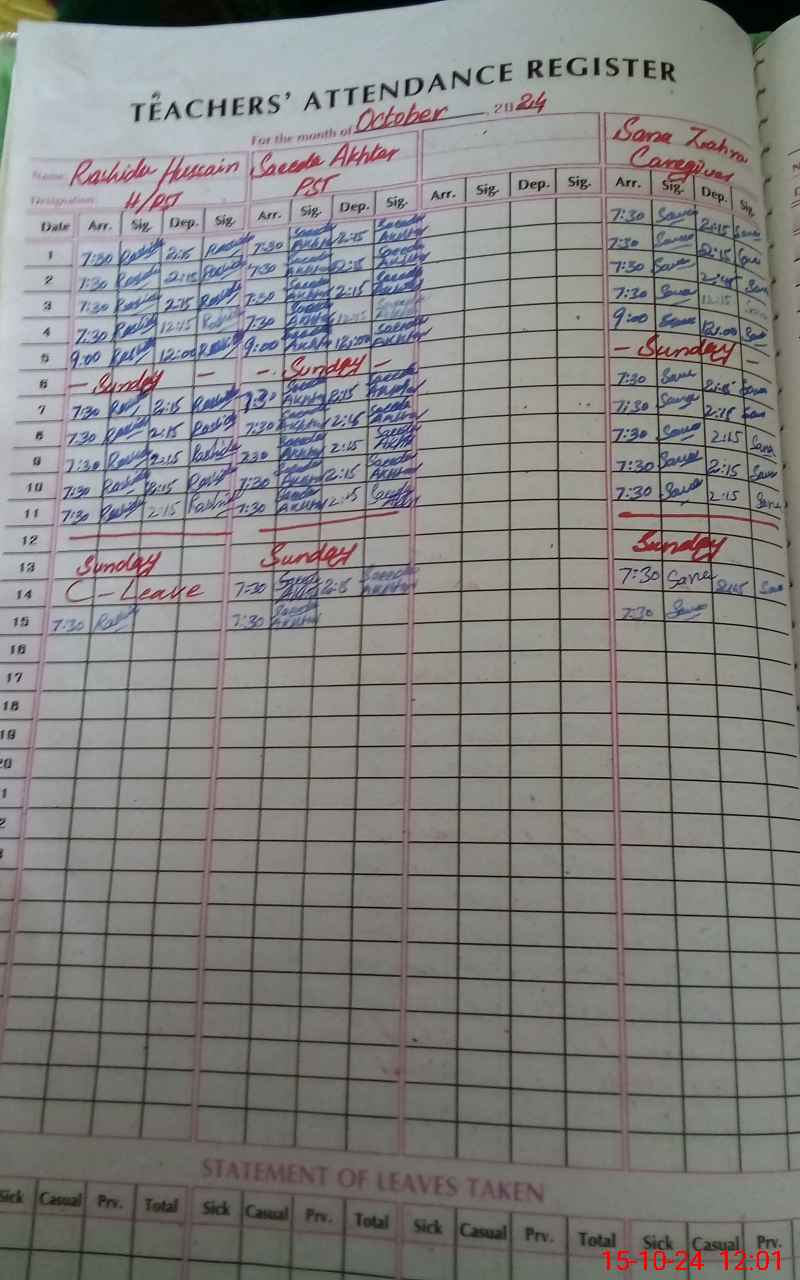 TEACHERS' ATTENDANCE REGISTER
For the month of October, 2024
Name: Rashida Hussain Saeeda Akhtar Sana Zahra
Designation: H/PST PST Caregiver
Date Arr. Sig. Dep. Sig. Arr. Sig. Dep. Sig. Arr. Sig. Dep. Sig. Arr. Sig. Dep. Sig.
1 7:30 Rashida 2:15 Rashida 7:30 Saeeda Akhtar 2:15 Saeeda Akhtar 7:30 Sana 2:15 Sana
2 7:30 Rashida 2:15 Rashida 7:30 Saeeda Akhtar 2:15 Saeeda Akhtar 7:30 Sana 2:15 Sana
3 7:30 Rashida 2:15 Rashida 7:30 Saeeda Akhtar 2:15 Saeeda Akhtar 7:30 Sana 2:15 Sana
4 7:30 Rashida 12:15 Rashida 7:30 Saeeda Akhtar 12:15 Saeeda Akhtar 7:30 Sana 12:15 Sana
5 9:00 Rashida 12:00 Rashida 9:00 Saeeda Akhtar 12:00 Saeeda Akhtar 9:00 Sana 12:00 Sana
6 - Sunday - - Sunday - - Sunday -
7 7:30 Rashida 2:15 Rashida 7:30 Saeeda Akhtar 2:15 Saeeda Akhtar 7:30 Sana 2:15 Sana
8 7:30 Rashida 2:15 Rashida 7:30 Saeeda Akhtar 2:15 Saeeda Akhtar 7:30 Sana 2:15 Sana
9 7:30 Rashida 2:15 Rashida 7:30 Saeeda Akhtar 2:15 Saeeda Akhtar 7:30 Sana 2:15 Sana
10 7:30 Rashida 2:15 Rashida 7:30 Saeeda Akhtar 2:15 Saeeda Akhtar 7:30 Sana 2:15 Sana
11 7:30 Rashida 2:15 Rashida 7:30 Saeeda Akhtar 2:15 Saeeda Akhtar 7:30 Sana 2:15 Sana
12
13 Sunday Sunday Sunday
14 C-Leave 7:30 Saeeda Akhtar 2:15 Saeeda Akhtar 7:30 Sana 2:15 Sana
15 7:30 Rashida 7:30 Saeeda Akhtar 7:30 Sana
16
17
18
19
20
1
2
3
STATEMENT OF LEAVES TAKEN
Sick Casual Prv. Total Sick Casual Prv. Total Sick Casual Prv. Total Sick Casual Prv.
15-10-24 12:01